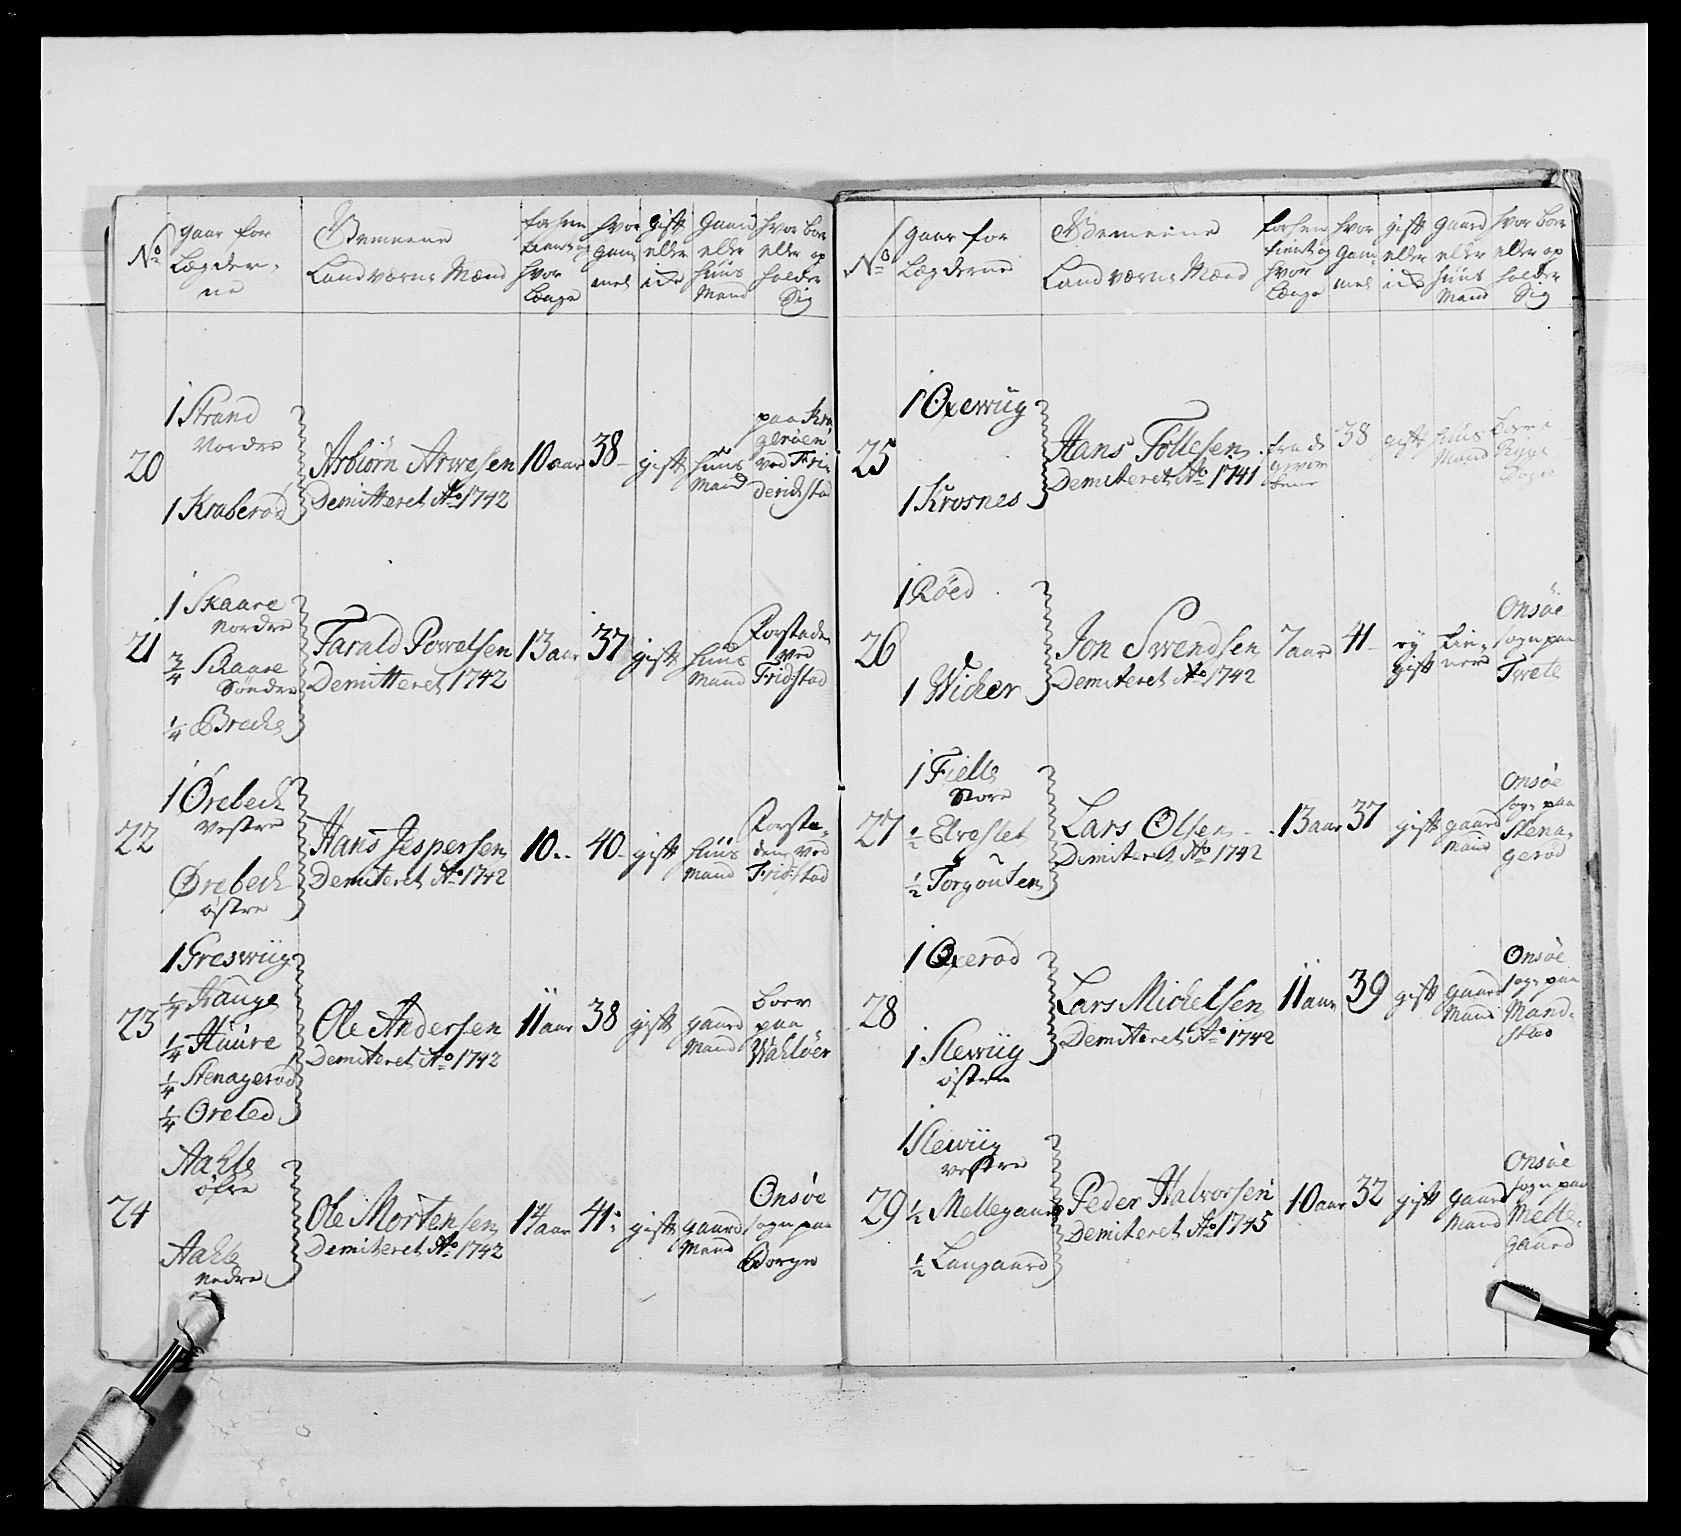 No
gaar for
Lægder-
ne
Gemeene
Landværns Mænd
forhen
tient og
hvor
Længe
hvor
gam
mel
gift
eller
ide
Gaard
eller
huus
Mand
hvor boer
eller op
holder
Sig
20
1 Strand
Nordre
1 Kraberød
Arbiörn Arwesen
Demitteret Ao 1742
10 aar
38
gift
huus
Mand
paa Kra
gerøen
ved Fri
derichstad
21
1 Skaare
Nordre
3/4 Skaare
Söndre
1/4 Breche
Tarald Powelsen
Demitteret 1742
13 aar
37
gift
huus
Mand
Forstaden
ved
Fridstad
22
1 Örebech
Vestre
Örebech
østre
Hans Jespersen
Demiteret Ao 1742
10
40
gift
huus
Mand
Forsta-
den ved
Fridstad
23
1 Greswiig
1/4 Hauge
1/4 Haüre
1/4 Stenagerød
1/4 Oreled
Ole Andersen
Demiteret Ao 1742
11 aar
38
gift
gaard
Mand
boer
paa
Wahløer
24
Aahle
öfre
Aahle
Nedre
Ole Mortensen
Demiteret Ao 1742
14 aar
41
gift
gaard
Mand
Onsøe
sogn paa
Borge
No
gaar for
Lægderne
Gemeine
Landværns Mænd
forhen
tient og
hvor
Længe
hvor
Gam
mel
gift
eller
ide
gaard
eller
huus
Mand
hvor boer
eller op
holder
Sig
25
1 Oxewiig
1 Krosnes
Hans Tollesen
Demiteret Ao 1741
38
gift
huus
Mand
Rygge
26
1 Röed
1 Wicher
Jon Swendsen
Demiteret Ao 1742
7 aar
41
ey
gift
Onsøe
sogn paa
Twete
27
1 Fielle
Store
1/2 Elveslet
1/2 Torgoutsen
Lars Olsen
Demiteret Ao 1742
13 aar
37
gift
gaard
Mand
Onsøe
sogn paa
Stena-
gerød
28
1 Oxerød
1 Slewiig
østre
Lars Michelsen
Demiteret Ao 1742
11 aar
39
gift
gaard
Mand
Onsøe
sogn paa
Mand-
stad
29
1 Slewiig
Vestre
1/2 Mellegaard
1/2 Langaard
Peder Halvorsen
Demiteret Ao 1745
10 aar
32
gift
gaard
Mand
Onsøe
sogn paa
Melle-
gaard